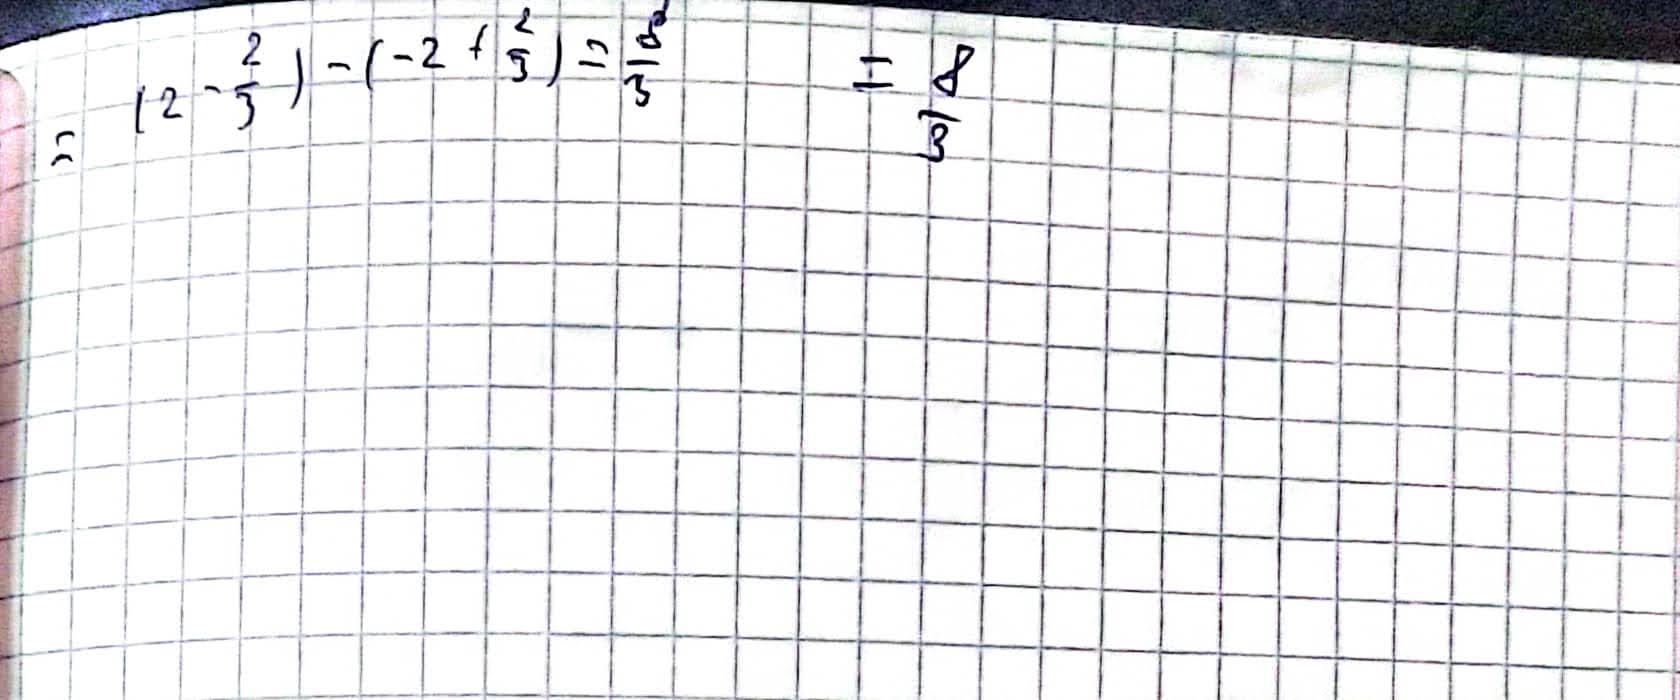 = (2 - 2/3) - (-2 + 2/3) = 8/3 = 8/3